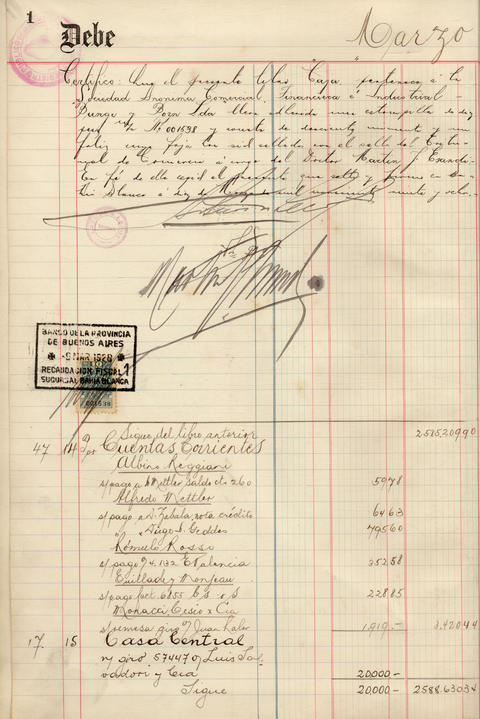 1 Debe Marzo
Certifico: Que el presente libro "Caja" pertenece á la
Sociedad Anonima Comercial, Financiera é Industrial
Bunge y Born Lda lleva adherido una estampilla de diez
pesos m/n Nº 001538 y consta de
foliz cuyo foja con sel sellada con el sello del
de Comercio á cargo del Doctor Martin J.
En fé de ello expido el presente que sello y firmo en Ba-
hia Blanca á diez de Marzo de mil novecientos veinte y ocho.
BANCO DE LA PROVINCIA
DE BUENOS AIRES
-9 MAR 1928
RECAUDACION FISCAL 1
SUCURSAL BAHIA BLANCA
001538
Sigue del libro anterior 2585209.90
47 14 Por Cuentas Corrientes
Albino Reggiani
s/pago a Mettler saldo ct. 260 5978
Alfredo Mettler
s/pago a D. Zabala, nota crédito 6463
" " Diego S. Geddes 79560
Rómulo Rosso
s/pago 4.132 E. Palencia 35258
Quillade y Monpeau
s/pago fact. 6855 22885
Monacci Cesio x Cia
s/remesa giro o/ Juan 1.919.- 3.42044
17. 15 Casa Central
n/ giro 574470/ Luis Sal-
vadori y Cia 20.000.-
Sigue 20.000.- 2588.63034